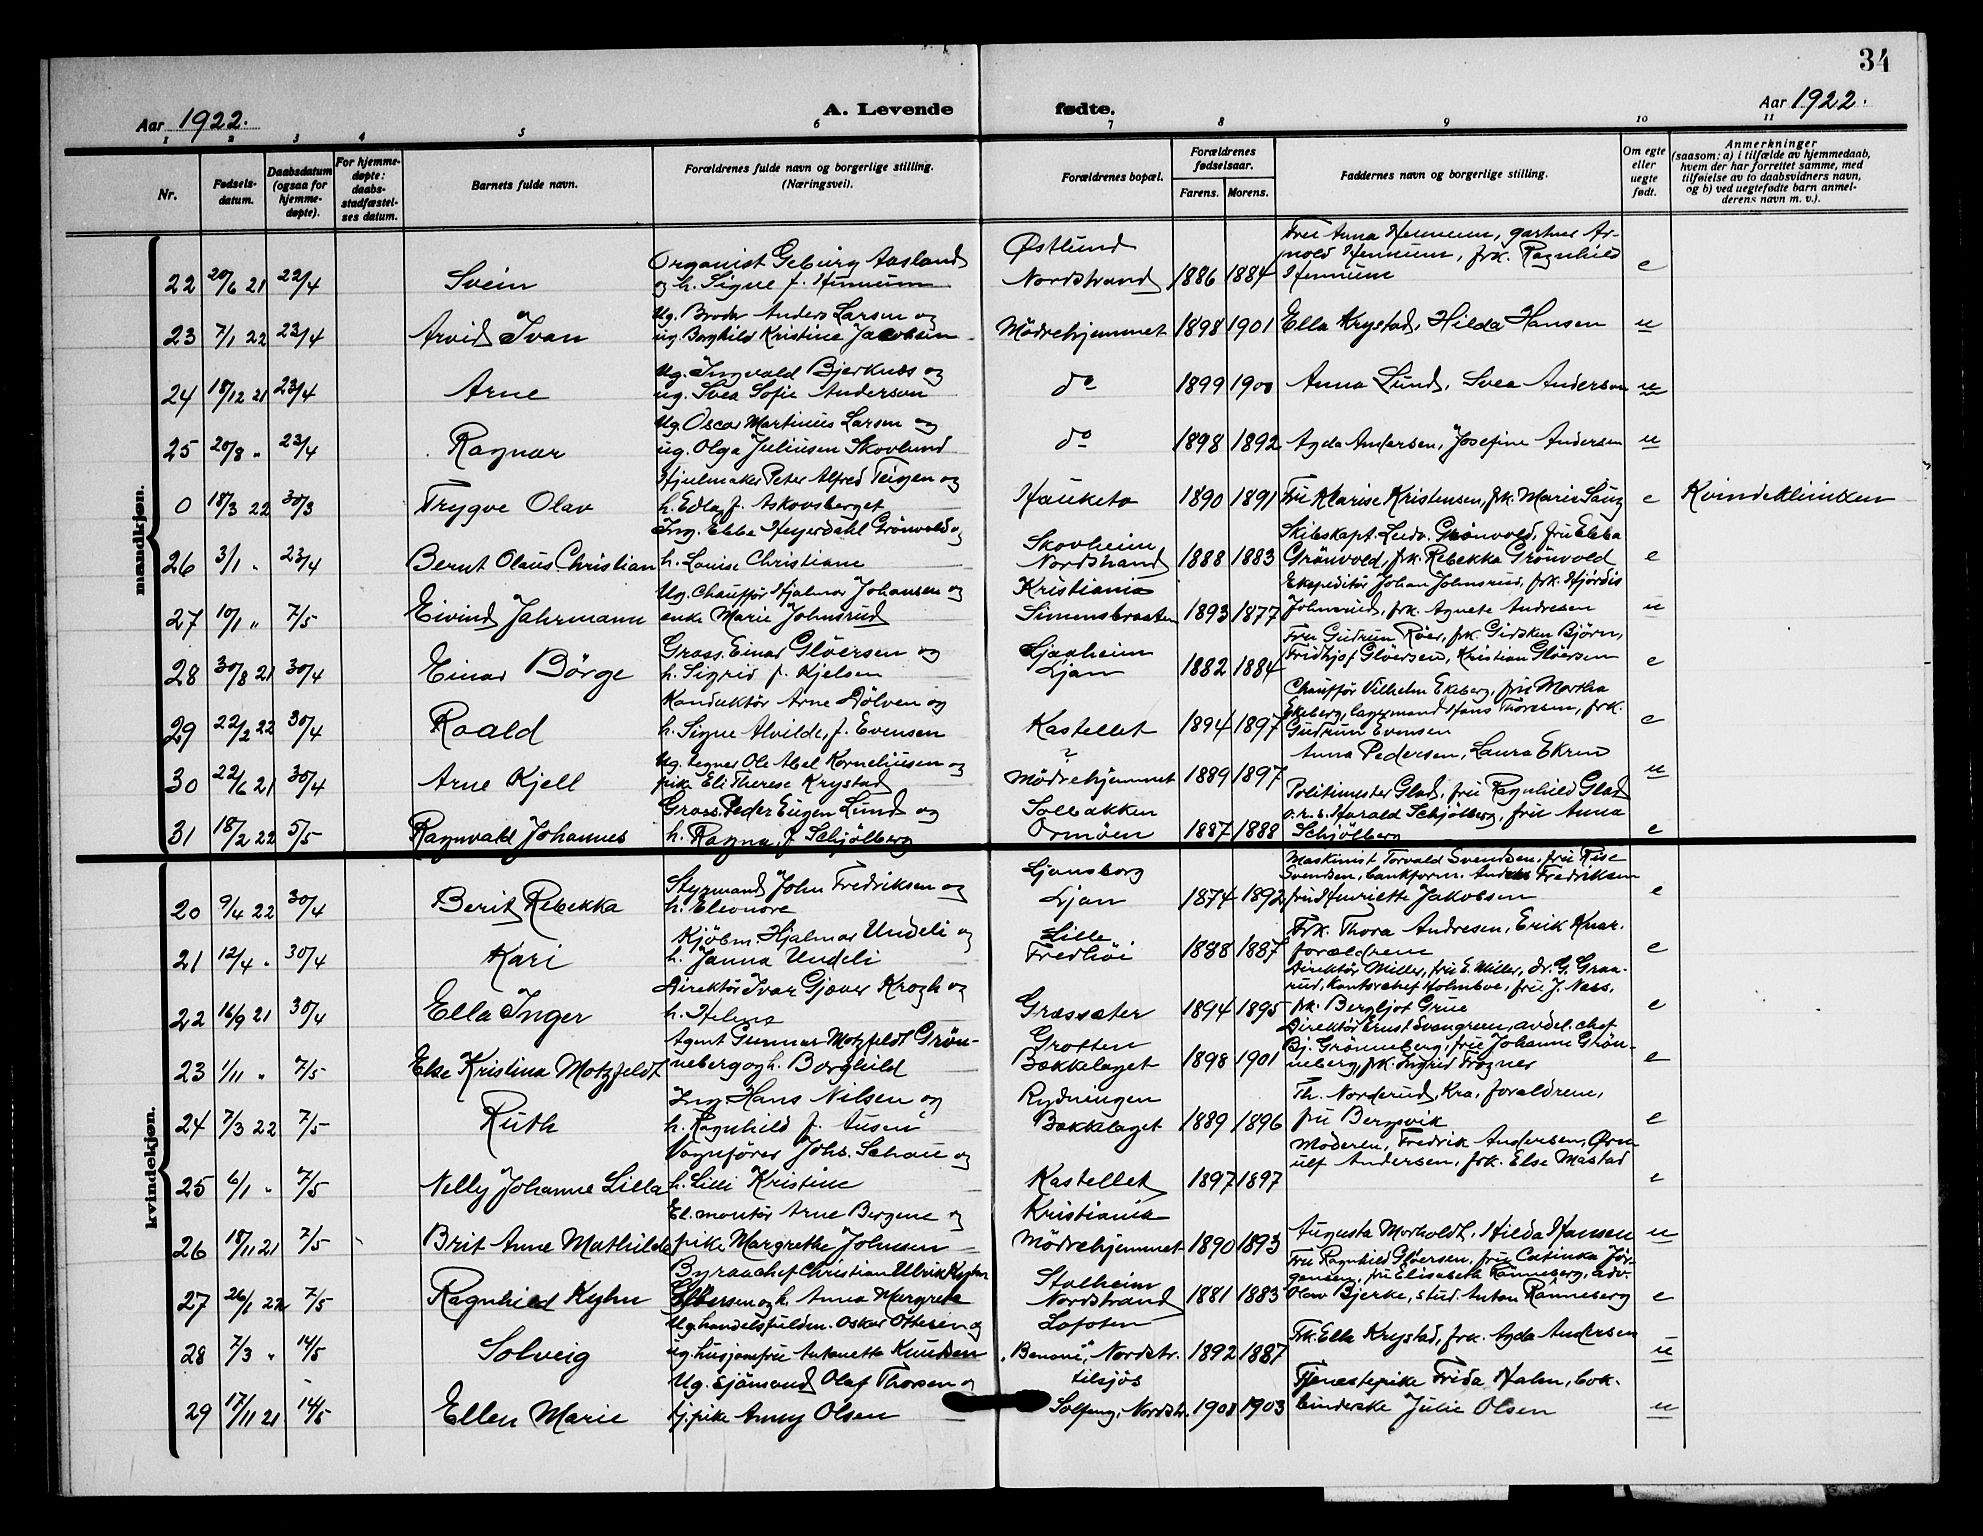 34
Aar 1922.
A. Levende fødte.
Aar 1922.
1 2 3 4 5 6 7 8 9 10 11
Nr.
Fødsels-
datum.
Daabsdatum
(ogsaa for
hjemme-
døpte).
For hjemme-
døpte:
daabs-
stadfæstel-
ses datum.
Barnets fulde navn.
Forældrenes fulde navn og borgerlige stilling.
(Næringsvei).
Forældrenes bopæl.
Forældrenes
fødselsaar.
Farens. Morens.
Faddernes navn og borgerlige stilling.
Om egte
eller
uegte
født.
Anmerkninger
(saasom: a) i tilfælde av hjemmedaab,
hvem der har forrettet samme, med
tilføielse av to daabsvidners navn,
og b) ved uegtefødte barn anmel-
derens navn m. v.).
mandkjøn.
Organist Geburg Aasland Østlund Fru Anna Hennum, gartner Ar-
22 20/6 21 22/4 Svein og h. Signe f. Hennum Nordstrand 1886 1884 nold Hennum, frk. Ragnhild Hennum e
Ug. Broder Anders Larsen og
23 7/1 22 23/4 Arvid Ivan ug. Borghild Kristine Jacobsen Mödrehjemmet 1898 1901 Ella Krystad, Hilda Hansen u
Ug. Ingvald Bjerknes og
24 18/12 21 23/4 Arne ug. Svea Sofie Anderson do 1899 1900 Anna Lund, Svea Anderson u
Ug. Oscar Martinius Larsen og
25 20/8 " 23/4 Ragnar ug. Olga Juliusen Skovlund do 1898 1892 Agda Andersen, Josefine Andersen u
Hjulmaker Peter Alfred Teigen og
0 18/3 22 30/3 Trygve Olav h. Edla f. Askovsberget Hauketo 1890 1891 Fru Marise Kristensen, frk. Marie e Kvindeklinikken
Ing. Ebbe Heyerdahl Grönvold og Skovheim Skibskapt. Ludv. Grönvold, fru Ebba
26 3/1 " 23/4 Bernt Olaus Christian h. Louise Christiane Nordstrand 1888 1883 Grönvold, frk. Rebekka Grönvold e
Ug. Chaufför Hjalmar Johansen og Kristiania Ekspeditör Johan Johnsrud, frk. Hjördis
27 10/1 " 7/5 Eivind Jahrmann enke Marie Johnsrud Simensbraaten 1893 1877 Johnsrud, frk. Agnete Andresen u
Gross. Einar Glöersen og Ljanheim Fru Gudrun Röer, frk. Gidsken Björn,
28 30/8 21 30/4 Einar Börge h. Sigrid f. Kjelsen Ljan 1882 1884 Fridtjof Glöersen, Kristian Glöersen e
Konduktör Arne Dölven og Chaufför Vilhelm Ekeberg, fru Martha
29 22/2 22 30/4 Roald h. Signe Alvilde, f. Evensen Kastellet 1894 1897 Ekeberg, lagermand Hans Thoresen, frk. Gudrun Evensen e
Ug. tegner Ole Abel Korneliusen og ? Anna Pedersen, Laura Ekren
30 22/6 21 30/4 Arne Kjell pike Eli Therese Krystad Mödrehjemmet 1889 1897 u
Gross. Peder Eugen Lund og Solbakken Politimester Glad, fru Ragnhild Glad
31 18/2 22 5/5 Ragnvald Johannes h. Ragna, f. Schjölberg Ormöen 1887 1888 o.r.s. Harald Schjölberg, fru Anna Schjölberg e
kvindekjøn.
Styrmand John Fredriksen og Ljansborg Maskinist Torvald Svendsen, fru
20 9/4 22 30/4 Berit Rebekka h. Eleonore Ljan 1874 1892 Svendsen, bankform. Anders Fredriksen fru Henriette Jakobsen e
Kjöbm. Hjalmar Undeli og Lille Frk. Thora Andresen, Erik Knar.
21 12/4 " 30/4 Kari h. Janna Undeli Fredhöi 1888 1887 forældrene e
Direktör Ivar Gjæver Krogh og Direktör Miller, fru E. Miller, dr. G. Graa-
22 16/9 21 30/4 Ella Inger h. Helma Græssæter 1894 1895 rud, Kontorchef Holmboe, fru J. Næss, frk. Bergljot Grue e
Agent Gunnar Motzfeldt Grön- Grotten Direktör Ernst Svangreen, avdel. chef
23 1/11 " 7/5 Else Kristina Motzfeldt neberg og h. Borghild Bækkelaget 1898 1901 Bj. Grönneberg, frue Johanne Grön- neberg, frk. Ingrid Frogner e
Ing. Hans Nilsen og Rydningen Th. Norderud, Kra, forældrene,
24 7/3 22 7/5 Ruth h. Ragnhild f. Ausen Bækkelaget 1889 1896 fru Bergsvik e
Vognförer Johs. Schau og Moderen, Fredrik Andersen, Örn-
25 6/1 " 7/5 Nelly Johanne Lilla h. Lilli Kristine Kastellet 1897 1897 ulf Andersen, frk. Else Mastad e
El. montör Arne Bergene og Kristiania
26 18/11 21 7/5 Brit Anne Mathilde pike Margrethe Johnsen Mödrehjemmet 1890 1893 Augusta Morholdt, Hilda Hansen u
Byraachef Christian Ulrik Kyhn Stalheim Fru Ragnhild Glöersen, frue Catinka Jör-
27 26/1 22 7/5 Ragnhild Kyhn Glöersen og h. Anna Margrete Nordstrand 1881 1883 gensen, fru Elisabeth Rönneberg, adv. Olav Bjerke, stud. Anton Rönneberg e
Ug. handelsfuldm. Oskar Ottesen og Lofoten
28 7/3 " 14/5 Solveig ug. husjomfru Antonette Knudsen "Benoni", Nordstr. 1892 1887 Frk. Ella Krystad, frk. Agda Andersen u
Ug. Sjömand Olaf Thorsen og tilsjös Tjenestepike Frida Halm, bok-
29 17/11 21 14/5 Ellen Marie tj. pike Anny Olsen Solfeng, Nordstr. 1901 1903 binderske Julie Olsen u